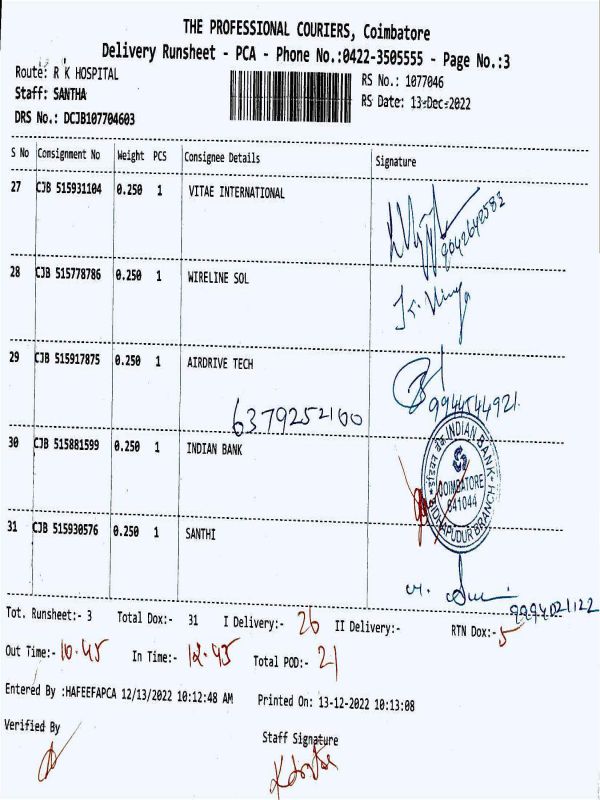 THE PROFESSIONAL COURIERS, Coimbatore
Delivery Runsheet - PCA - Phone No.:0422-3505555 - Page No.:3
Route: R K HOSPITAL
RS No.: 1077046
Staff: SANTHA
RS Date: 13-Dec-2022
DRS No.: DCJB107704603
S No Consignment No Weight PCS Consignee Details Signature
27 CJB 515931104 0.250 1 VITAE INTERNATIONAL
9042642583
28 CJB 515778786 0.250 1 WIRELINE SOL
29 CJB 515917875 0.250 1 AIRDRIVE TECH
9944544921
6379252100
30 CJB 515881599 0.250 1 INDIAN BANK
इंडियन बैंक INDIAN BANK
COIMBATORE
641044
SIDHAPUDUR BRANCH
31 CJB 515930576 0.250 1 SANTHI
9994021122
Tot. Runsheet:- 3 Total Dox:- 31 I Delivery:- 26 II Delivery:- RTN Dox:- 5
Out Time:- 10.45 In Time:- 12.45 Total POD:- 21
Entered By :HAFEEFAPCA 12/13/2022 10:12:48 AM Printed On: 13-12-2022 10:13:08
Verified By
Staff Signature